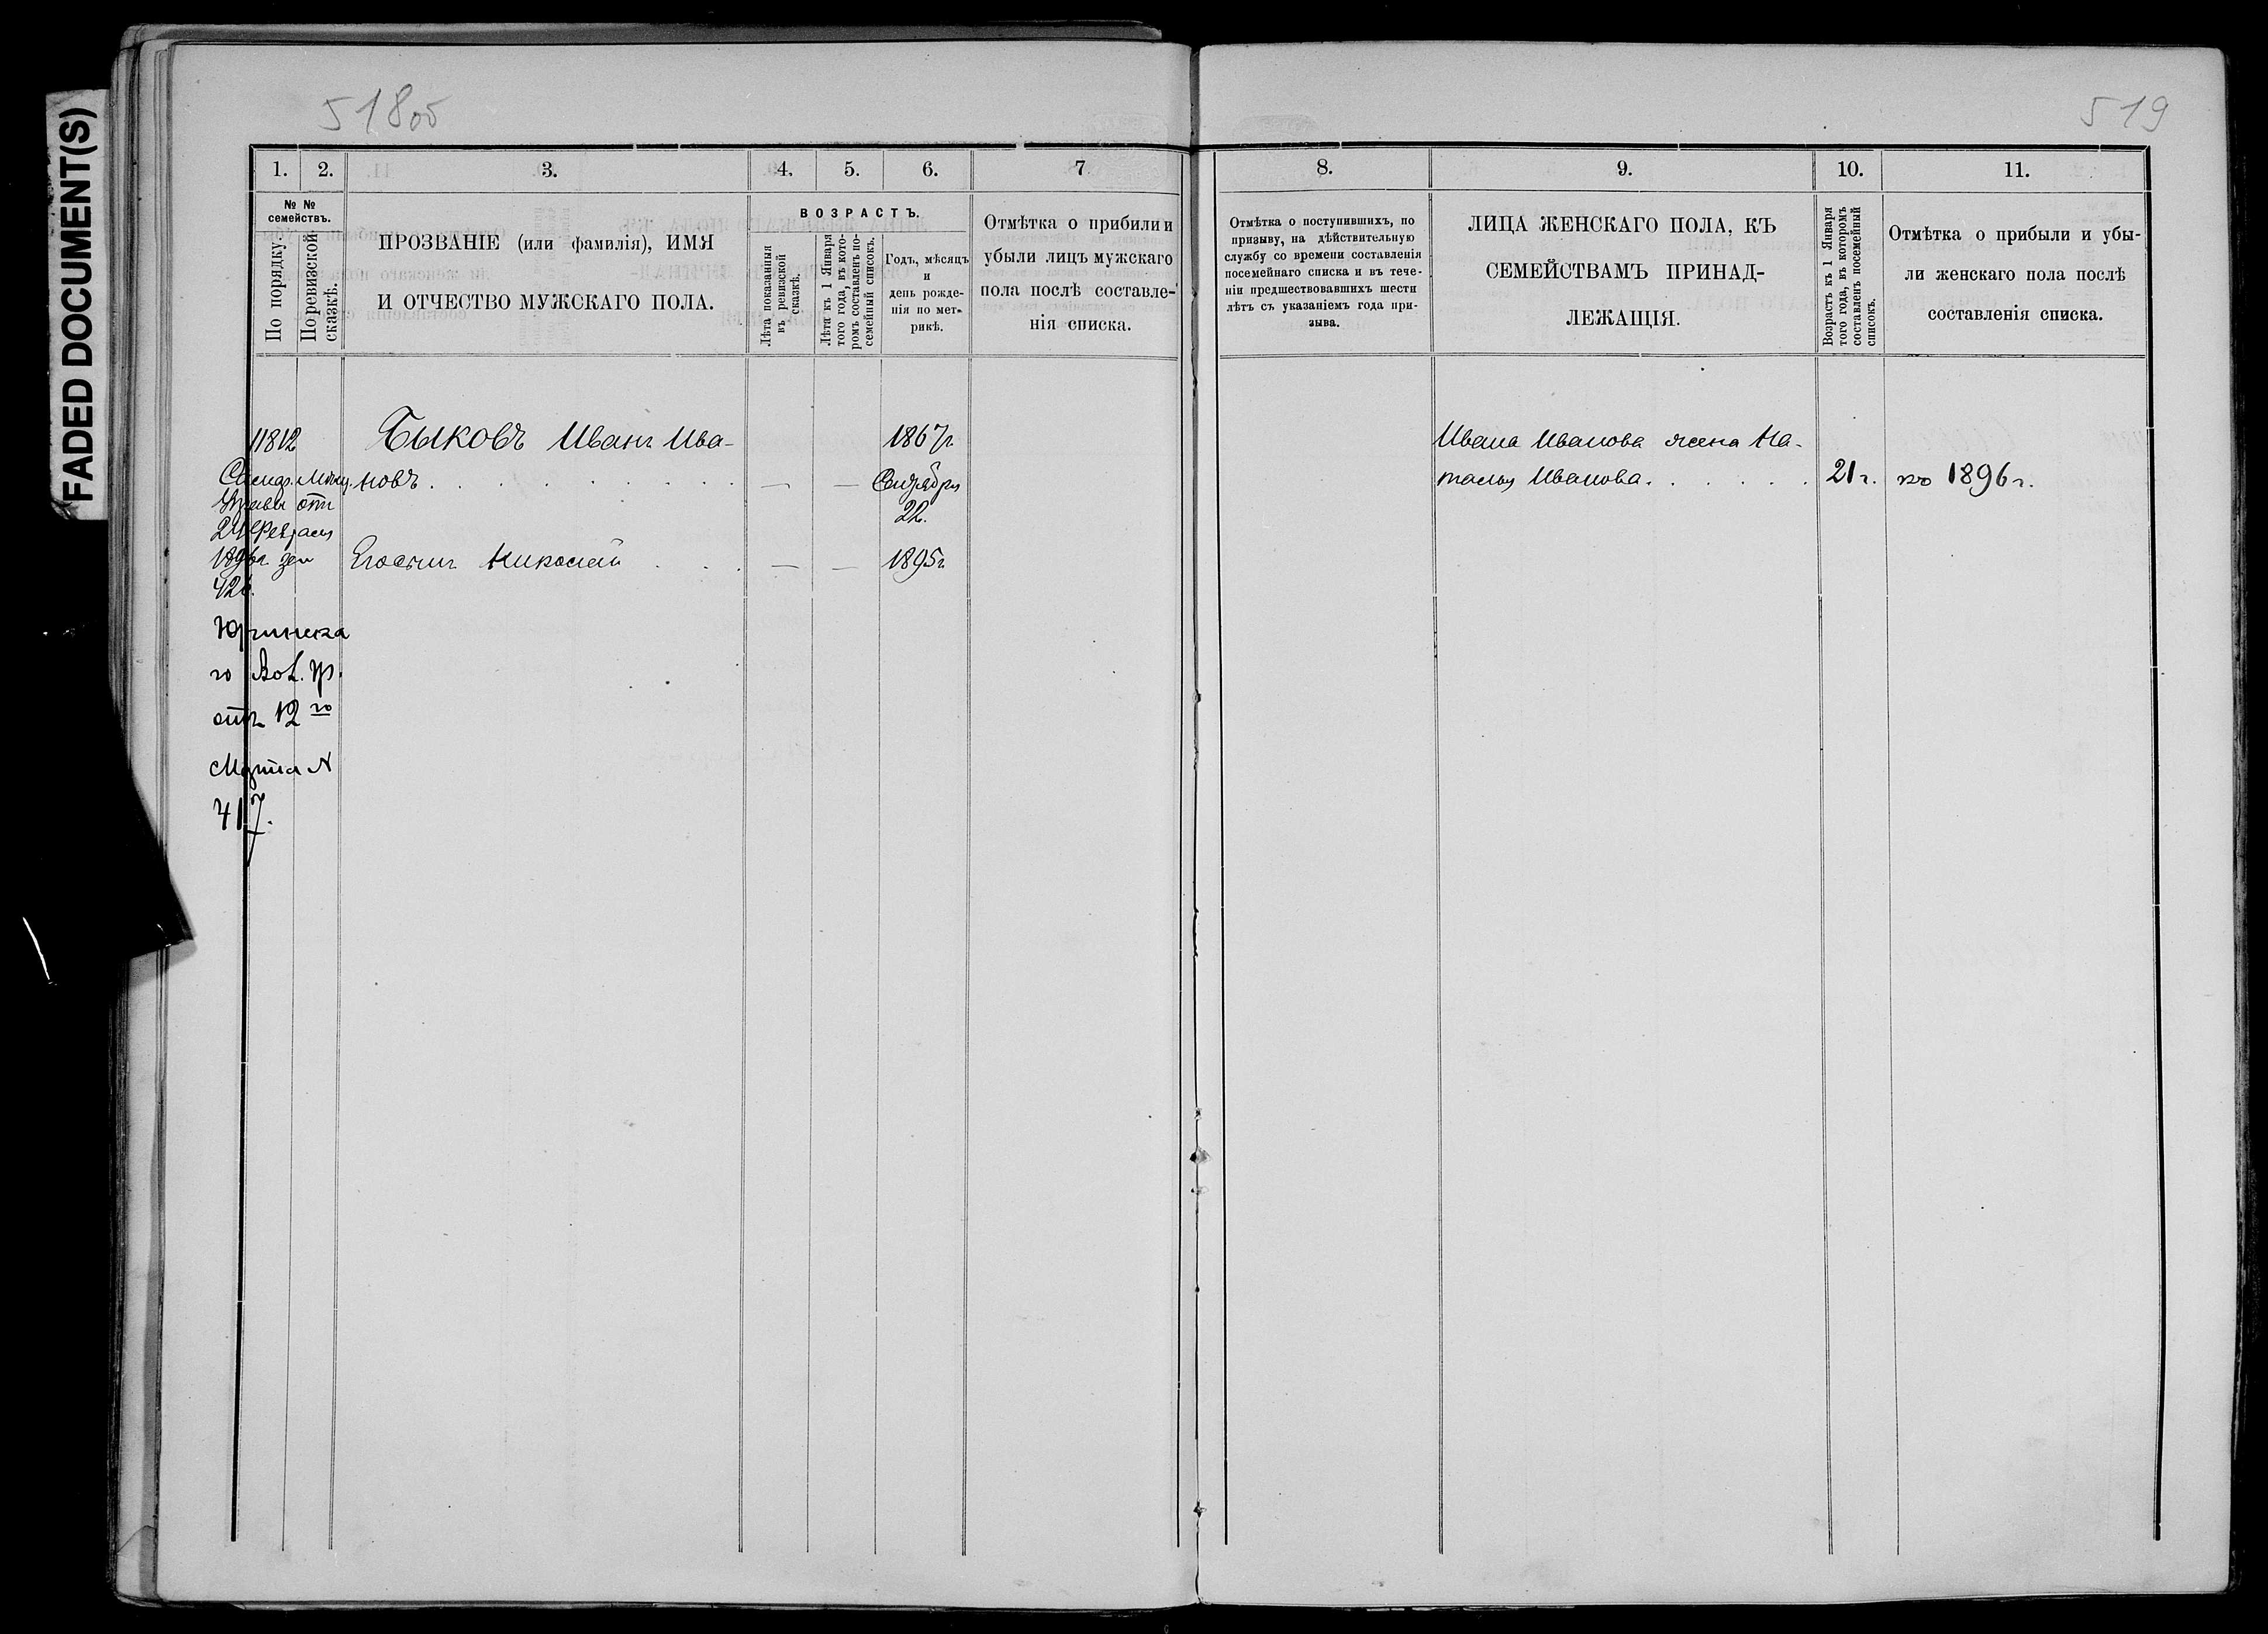 FADED DOCUMENT(S)
518об
519
1.
2.
3.
4.
5.
6.
7
8.
9.
10.
11.
№ №
семействъ.
По порядку.
По ревизской
сказкѣ.
ПРОЗВАНІЕ (или фамилія), ИМЯ
И ОТЧЕСТВО МУЖСКАГО ПОЛА.
ВОЗРАСТЪ.
Лѣта показанныя
въ ревизской
сказкѣ.
Лѣта къ 1 Января
того года, въ кото-
ромъ составленъ по-
семейный списокъ.
Годъ, мѣсяцъ
и
день рожде-
нія по мет-
рикѣ.
Отмѣтка о прибили и
убыли лицъ мужскаго
пола послѣ составле-
нія списка.
Отмѣтка о поступившихъ, по
призыву, на дѣйствительную
службу со времени составленія
посемейнаго списка и въ тече-
ніи предшествовавшихъ шести
лѣтъ съ указаніемъ года при-
зыва.
ЛИЦА ЖЕНСКАГО ПОЛА, КЪ
СЕМЕЙСТВАМЪ ПРИНАД-
ЛЕЖАЩІЯ.
Возрастъ къ 1 Января
того года, въ которомъ
составленъ посемейный
списокъ.
Отмѣтка о прибыли и убы-
ли женскаго пола послѣ
составленія списка.
11812
Мѣщ.
Управы отъ
24 Февраля
1896г. за
426.
го Вол. пр.
отъ 12го
Марта №
417.
Быковъ Иванъ Ива-
новъ . . . . . . . . . .
— —
1867г
22.
Его сынъ Николай . . .
— —
1895г.
Ивана Иванова жена На-
талья Иванова. . . . . .
21г.
къ 1896г.